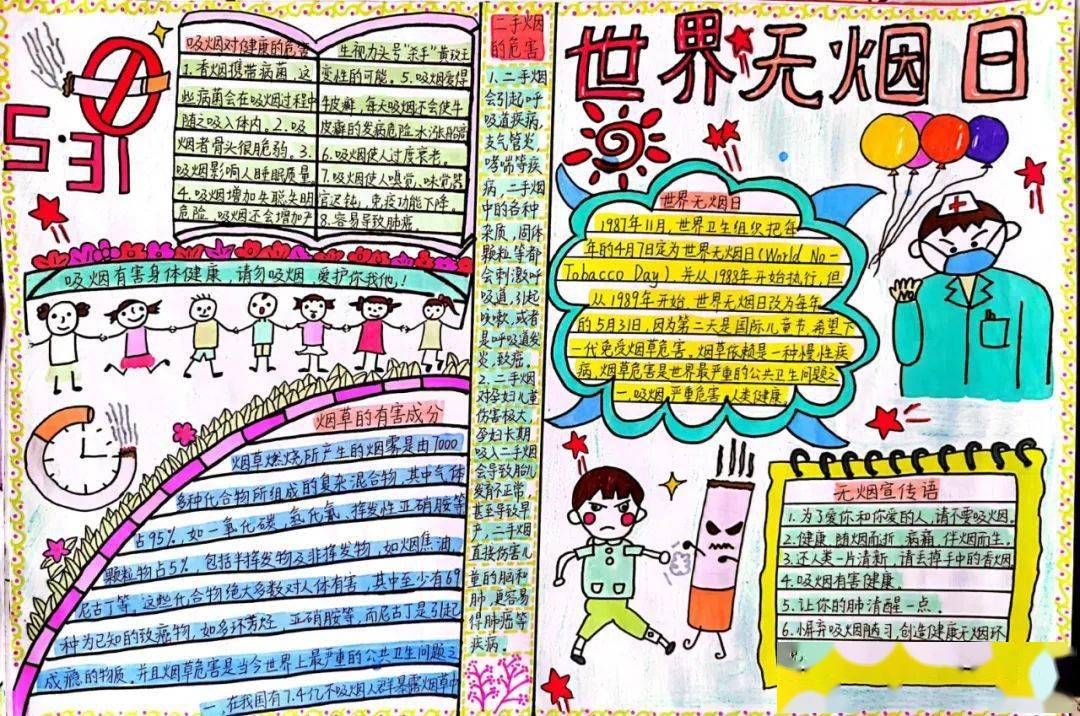 世界无烟日
5·31
吸烟对健康的危害
1.香烟携带病菌,这
些病菌会在吸烟过程中
随之吸入体内。2.吸
烟者骨头很脆弱。3.
吸烟影响人睡眠质量
4.吸烟增加失聪失明
危险,吸烟不会增加产
生视力头号"杀手"黄斑王
变性的可能。5.吸烟爱得
牛皮癣,每天吸烟不会使牛
皮癣的发病危险水涨船高
6.吸烟使人过度衰老。
7.吸烟使人嗅觉、味觉器
官迟钝,免疫功能下降。
8.容易导致肺癌。
吸烟有害身体健康,请勿吸烟,爱护你我他!
烟草的有害成分
烟草燃烧所产生的烟雾是由7000
多种化合物所组成的复杂混合物,其中气体
占95%,如一氧化碳,氢化氰,挥发性亚硝胺等
颗粒物占5%,包括半挥发物及非挥发物,如烟焦油
尼古丁等,这些化合物绝大多数对人体有害,其中至少有69
种为已知的致癌物,如多环芳烃,亚硝胺等,而尼古丁是引起
成瘾的物质,并且烟草危害是当今世界上最严重的公共卫生问题之
一,在我国有7.4亿不吸烟人群暴露烟草中
二手烟
的危害
1.二手烟
会引起呼
吸道疾病,
支气管炎,
哮喘等疾
病,二手烟
中的各种
杂质,固体
颗粒等都
会刺激呼
吸道,引起
咳嗽,或者
是呼吸道发
炎,致癌。
2.二手烟
对孕妇儿童
伤害极大,
孕妇长期
吸入二手烟
会导致胎儿
发育不正常,
甚至导致早
产,二手烟
直接伤害儿
童的脑和
肺,更容易
得肺癌等
疾病。
世界无烟日
1987年11月,世界卫生组织把每
年的4月7日定为世界无烟日(World No-
Tobacco Day),并从1988年开始执行,但
从1989年开始,世界无烟日改为每年
的5月31日,因为第二天是国际儿童节,希望下
一代免受烟草危害。烟草依赖是一种慢性疾
病,烟草危害是世界最严重的公共卫生问题之
一,吸烟严重危害人类健康
无烟宣传语
1.为了爱你和你爱的人,请不要吸烟。
2.健康随烟而折,病痛伴烟而生。
3.还人类一片清新,请丢掉手中的香烟
4.吸烟有害健康
5.让你的肺清醒一点。
6.摒弃吸烟陋习,创造健康无烟环